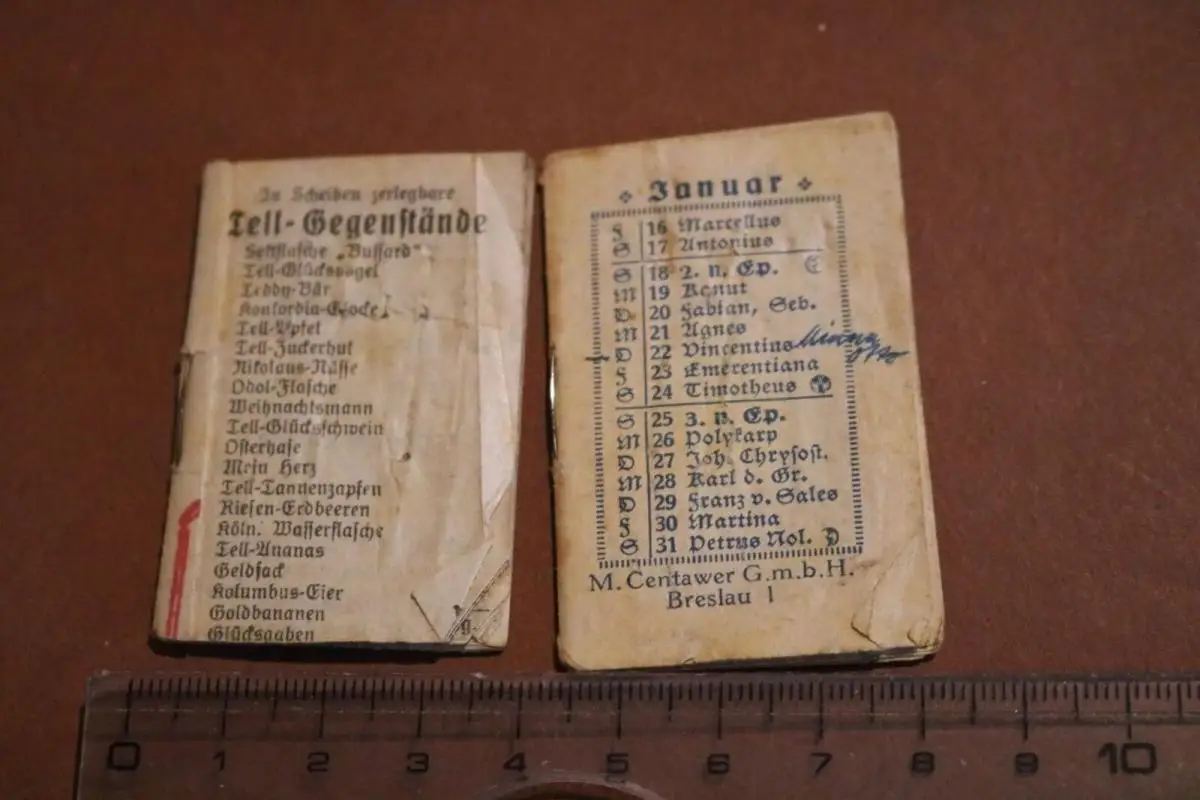 In Scheiben zerlegbare
Tell-Gegenstände
Sektflasche „Bussard"
Tell-Glücksvogel
Teddy-Bär
Konkordia-Glocke
Tell-Apfel
Tell-Zuckerhut
Nikolaus-Nüsse
Odol-Flasche
Weihnachtsmann
Tell-Glücksschwein
Osterhase
Mein Herz
Tell-Tannenzapfen
Riesen-Erdbeeren
Köln. Wasserflasche
Tell-Ananas
Geldsack
Kolumbus-Eier
Goldbananen
Glücksgaben
Januar
F 16 Marcellus
S 17 Antonius
S 18 2. n. Ep.
M 19 Kanut
D 20 Fabian, Seb.
M 21 Agnes
D 22 Vincentius
F 23 Emerentiana
S 24 Timotheus
S 25 3. n. Ep.
M 26 Polykarp
D 27 Joh. Chrysost.
M 28 Karl d. Gr.
D 29 Franz v. Sales
F 30 Martina
S 31 Petrus Nol.
M. Centawer G.m.b.H.
Breslau 1
0 1 2 3 4 5 6 7 8 9 10